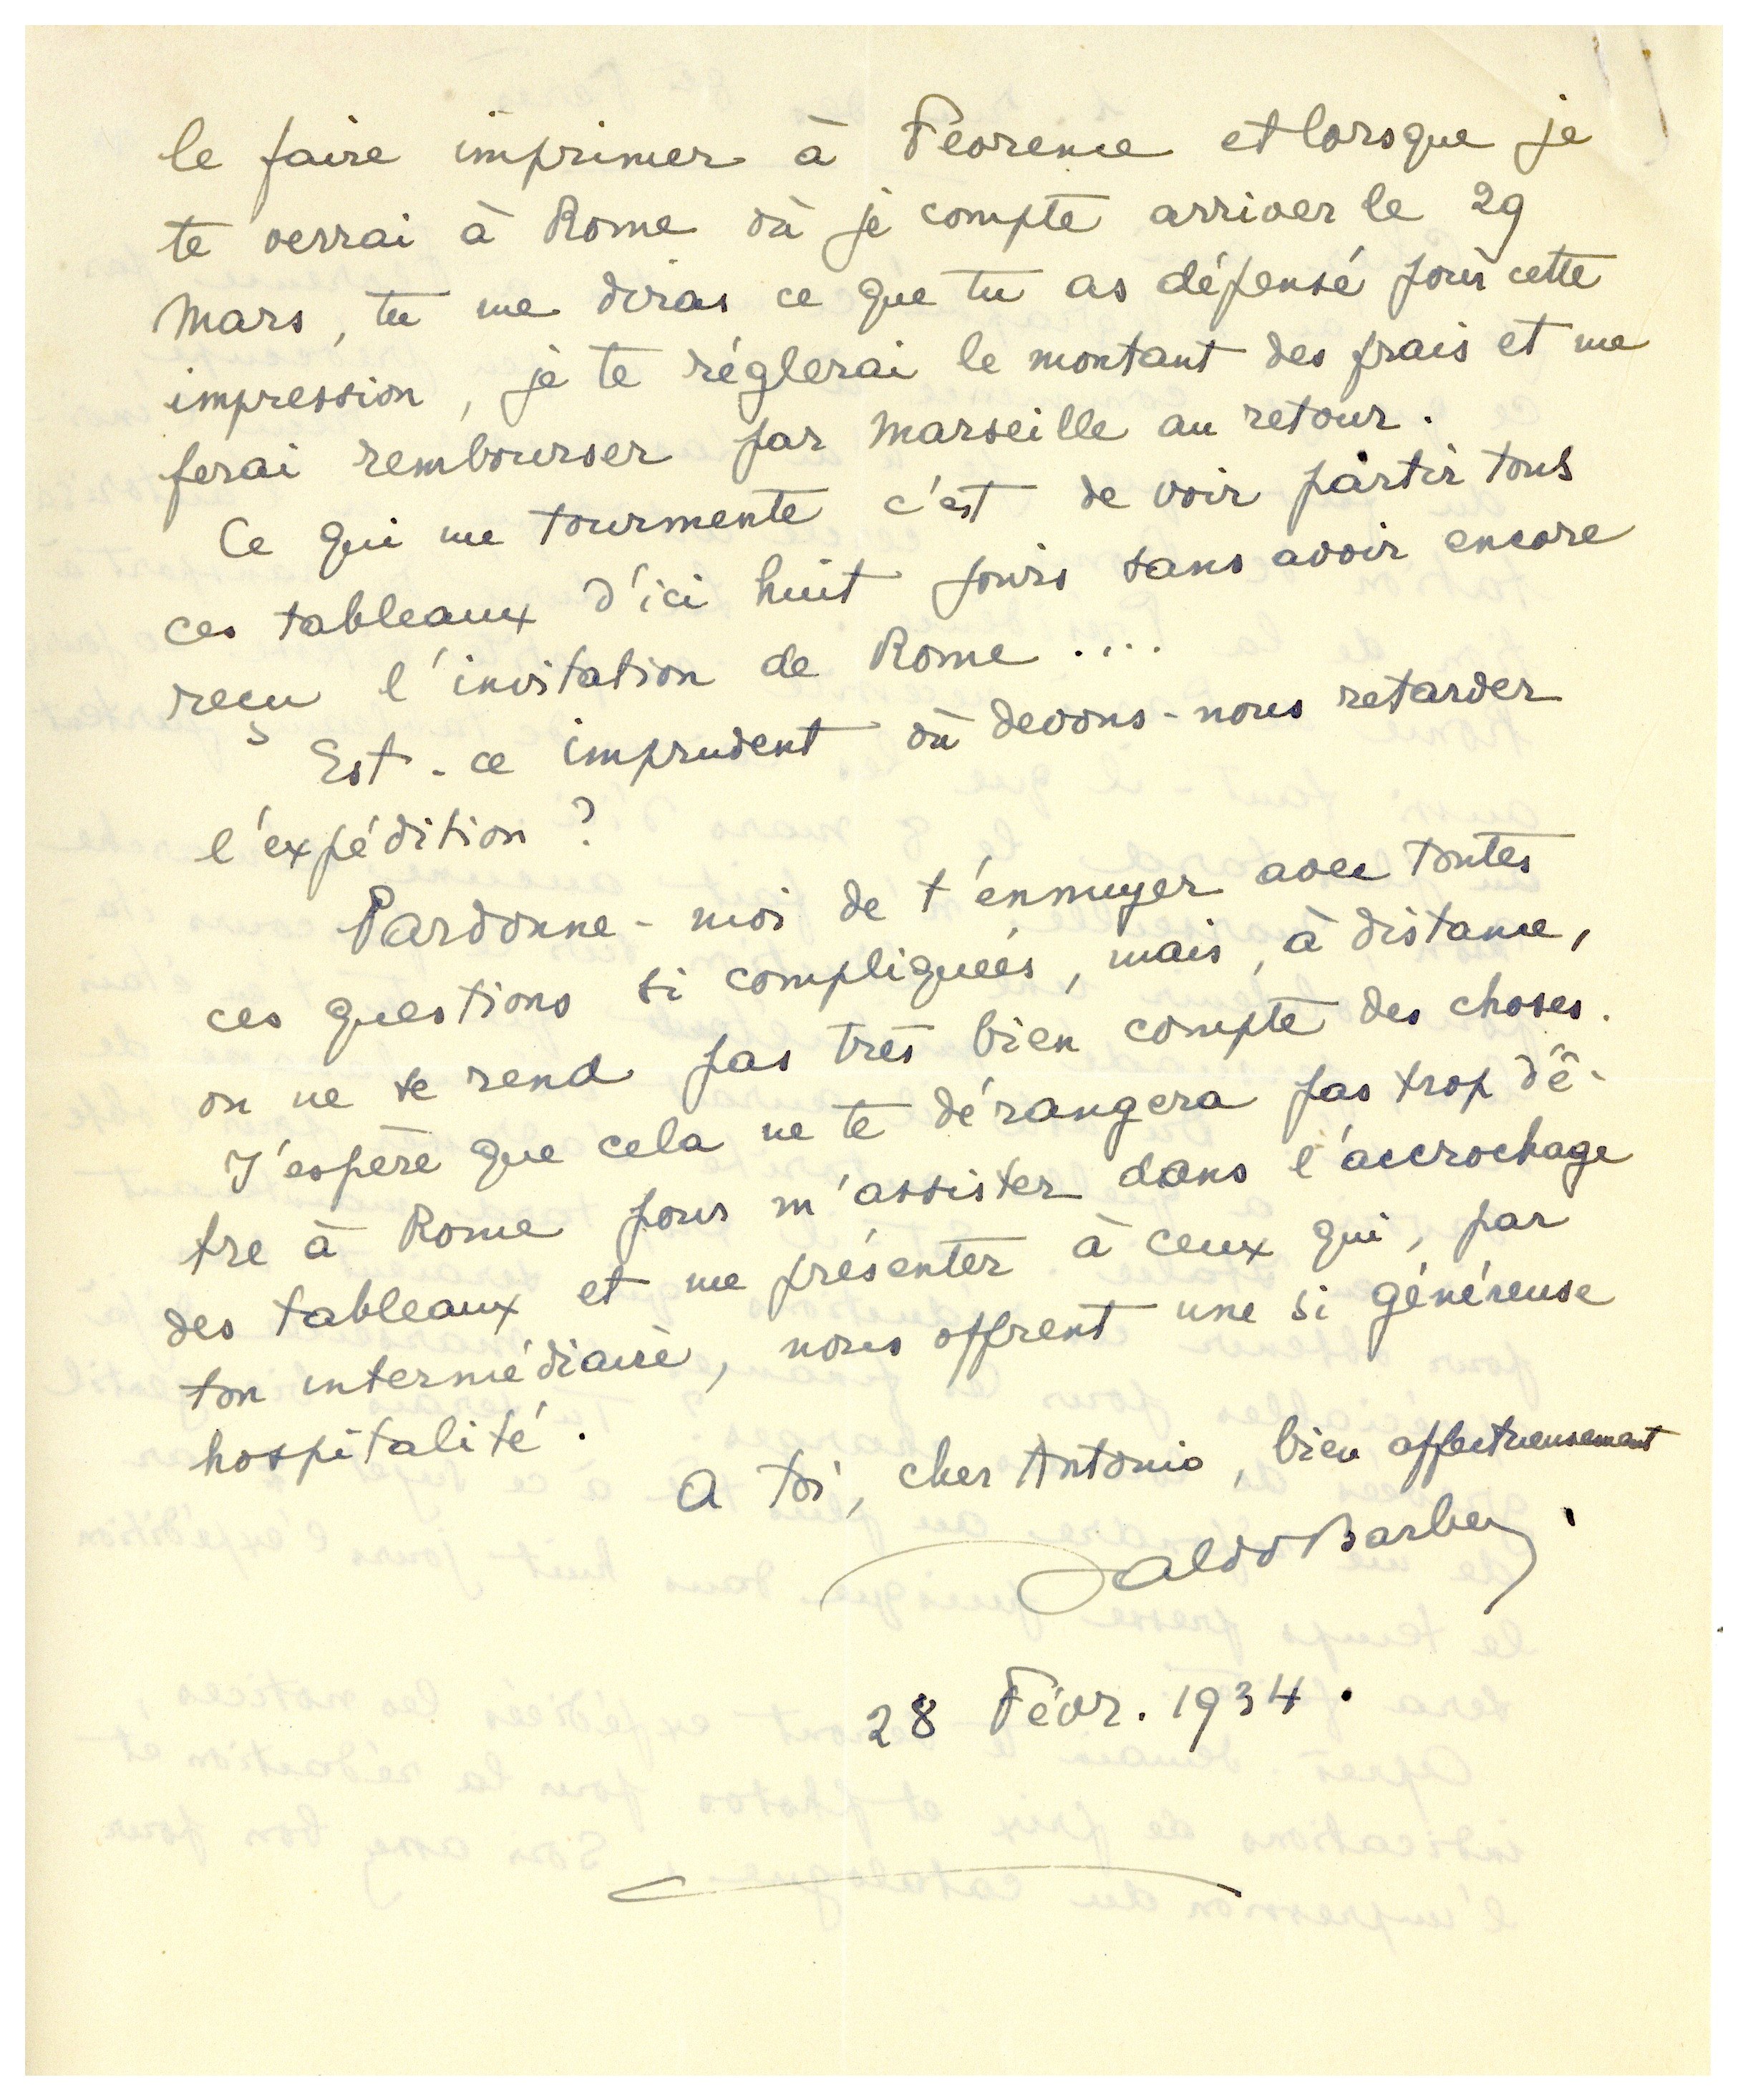 le faire imprimer à Florence et lorsque je
te verrai à Rome où je compte arriver le 29
Mars, tu me diras ce que tu as dépensé pour cette
impression, je te réglerai le montant des frais et me
ferai rembourser par Marseille au retour.
Ce qui me tourmente c'est de voir partir tous
ces tableaux d'ici huit jours sans avoir encore
reçu l'invitation de Rome ....
Est-ce imprudent où devons-nous retarder
l'expédition ?
Pardonne-moi de t'ennuyer avec toutes
ces questions si compliquées, mais, à distance,
on ne se rend pas très bien compte des choses.
J'espère que cela ne te dérangera pas trop d'ê-
tre à Rome pour m'assister dans l'accrochage
des tableaux et me présenter à ceux qui, par
ton intermédiaire, nous offrent une si généreuse
hospitalité.
A toi, cher Antonio, bien affectueusement
Aldo Barbey
28 Févr. 1934.